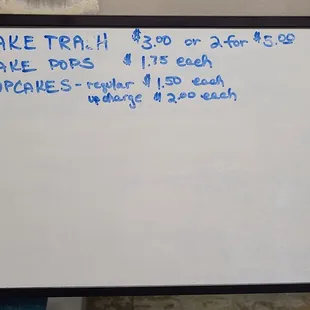 AKE TRA H $3.00 or 2 for $5.00
AKE POPS $1.75 each
UPCAKES - regular $1.50 each
upcharge $2.00 each